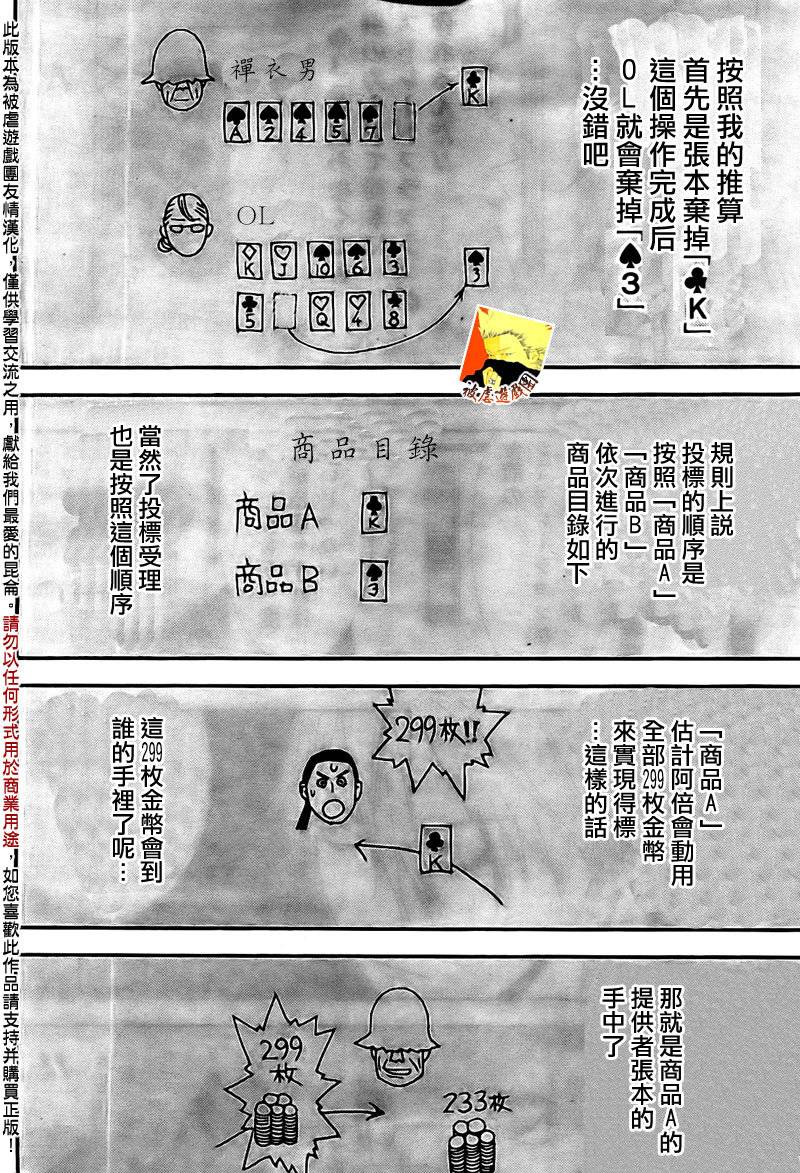 按照我的推算
首先是張本棄掉「♣K」
這個操作完成后
OL就會棄掉「♠3」
…沒錯吧
禪衣男
A
2
4
5
7
K
OL
K
J
10
6
3
5
Q
4
8
3
被虐遊戲團
規則上說
投標的順序是
按照「商品A」
「商品B」
依次進行的
商品目錄如下
商品目錄
商品A
K
商品B
3
當然了投標受理
也是按照這個順序
「商品A」
估計阿倍會動用
全部299枚金幣
來實現得標
…這樣的話
299枚!!
K
這299枚金幣會到
誰的手裡了呢…
那就是商品A的
提供者張本的
手中了
299
枚
233枚
此版本為被虐遊戲團友情漢化，僅供學習交流之用，獻給我們最愛的昆侖。請勿以任何形式用於商業用途，如您喜歡此作品請支持并購買正版！